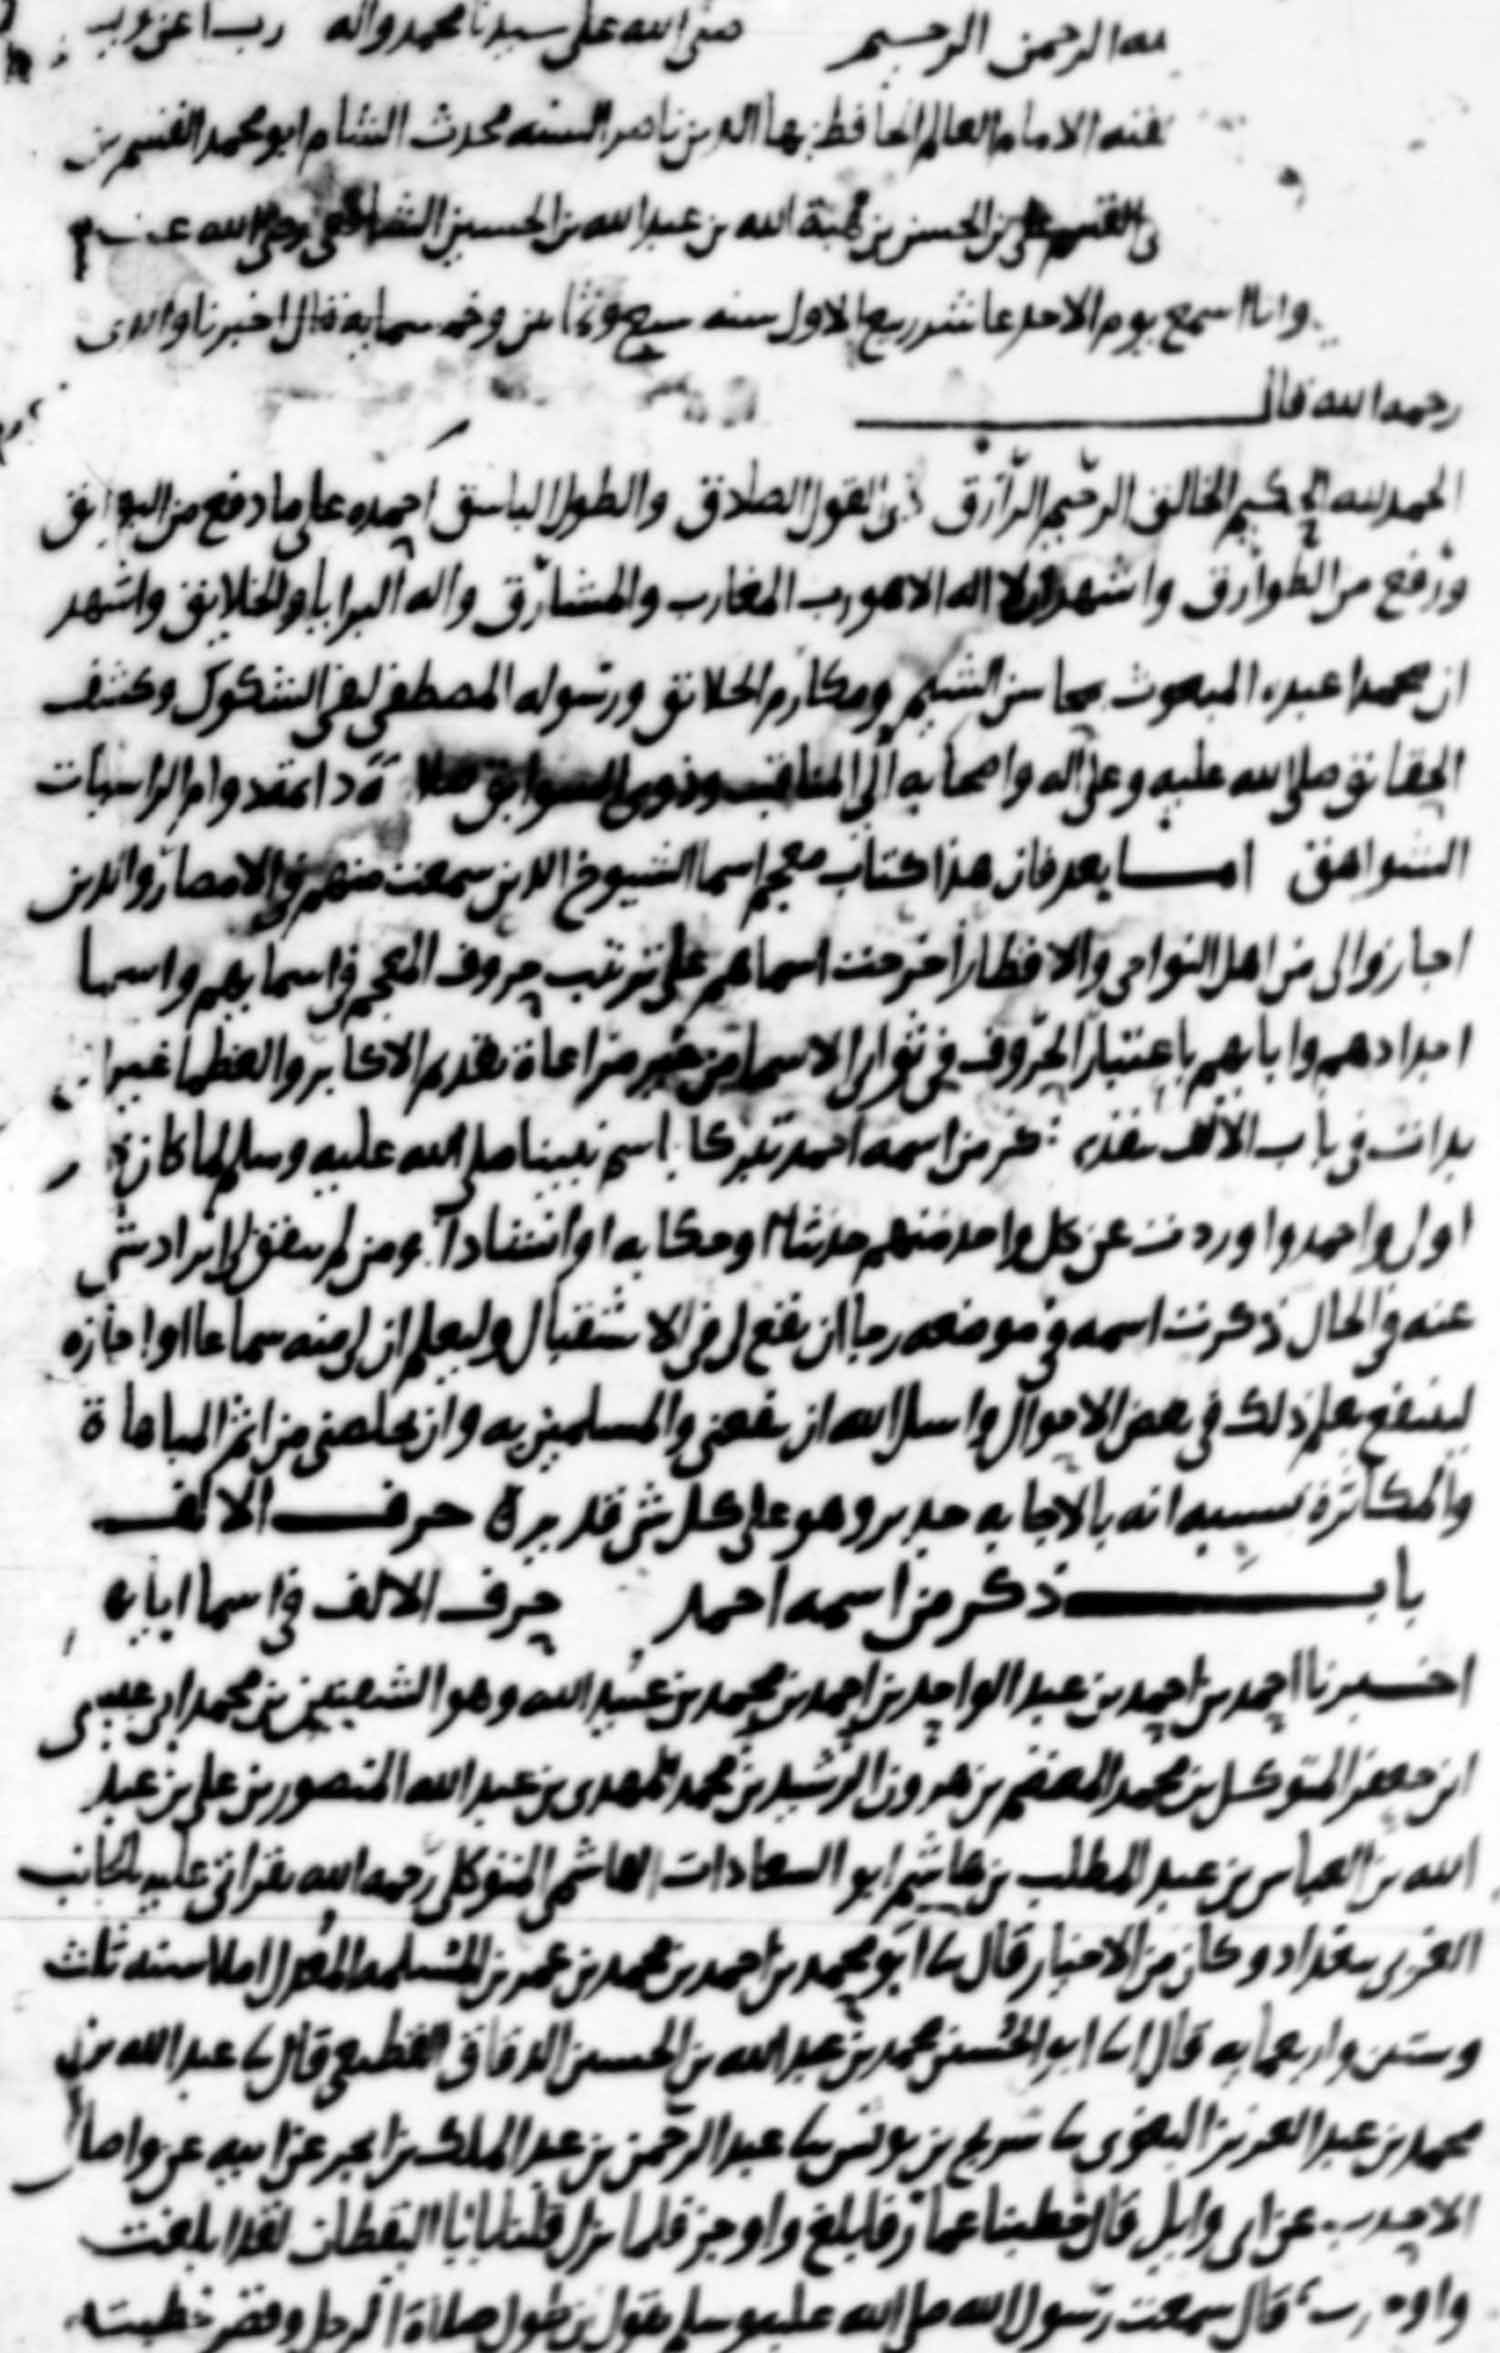 لله الرحمن الرحيم صلى الله على سيدنا محمد واله رب اعن
الامام العالم الحافظ بها الدين ناصر السنه محدث الشام ابو محمد القسم بن
القسم على بن الحسن بن هبة الله بن عبد الله بن الحسين الشافعى رضى الله عنهم
وانا اسمع يوم الاحد عاشر ربيع الاول سنه سبع وثمانين وخمسمايه قال اخبرنا والدى
رحمه الله قال
الحمد لله الحكيم الخالق الرحيم الرازق ذى القول الصادق والطول الباسق احمده على ما دفع من البوايق
ورفع من الطوارق واشهد ان لا اله الا هو رب المغارب والمشارق واله البرايا والخلايق واشهد
ان محمدا عبده المبعوث بمحاسن الشيم ومكارم الخلايق ورسوله المصطفى لنفى الشكوك وكشف
الحقايق صلى الله عليه وعلى اله واصحابه اولى المناقب وذوى السوابق صلاة دايمة دوام الراسيات
الشواهق اما بعد فان هذا كتاب معجم اسما الشيوخ الذين سمعت منهم فى الامصار والذين
اجازوا لى من اهل النواحى والاقطار اخرجت اسماهم على ترتيب حروف المعجم فى اسمايهم واسما
اجدادهم وابايهم باعتبار الحروف فى توالى الاسما من غير مراعاة تقديم الاكابر والعظما غير انى
بدات فى باب الالف بذكر من اسمه احمد تبركا باسم نبينا صلى الله عليه وسلم لما كان
اول واحد واوردت عن كل واحد منهم حديثا او حكايه او انشادا ومن لم يتفق لى ايراد شى
عنه فى الحال ذكرت اسمه فى موضعه رجا ان يقع لى فى الاستقبال وليعلم ان لى منه سماعا او اجازه
لينتفع بعلم ذلك فى بعض الاحوال واسل الله ان ينفعنى والمسلمين به وان يخلصنى من اثم المباهاة
والمكاثرة بسببه انه بالاجابه جدير وهو على كل شى قدير حرف الالف
باب ذكر من اسمه احمد حرف الالف فى اسما ابايه
اخبرنا احمد بن احمد بن عبد الواحد بن احمد بن محمد بن عبيد الله وهو الشفنين بن محمد ابى عيسى
ابن جعفر المتوكل بن محمد المعتصم بن هرون الرشيد بن محمد المهدى بن عبد الله المنصور بن على بن عبد
الله بن العباس بن عبد المطلب بن هاشم ابو السعادات الهاشمى المتوكلى رحمه الله بقراتى عليه بالجانب
الغربى ببغداد وكان من الاخيار قال ثنا ابو محمد بن احمد بن محمد بن عمر بن المسلمة المعدل املا سنه ثلث
وستين واربعمايه قال ابنا ابو الحسين محمد بن عبد الله بن الحسين الدقاق القطيعى قال ثنا عبد الله بن
محمد بن عبد العزيز البغوى ثنا سريج بن يونس ثنا عبد الرحمن بن عبد الملك بن ابجر عن ابيه عن واصل
الاحدب عن ابى وايل قال خطبنا عمار فابلغ واوجز فلما نزل قلنا يا ابا اليقظان لقد ابلغت
واوجزت قال سمعت رسول الله صلى الله عليه وسلم يقول ان طول صلاة الرجل وقصر خطبته